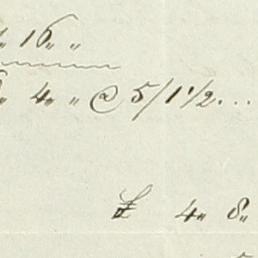 16 " "
4 " " @ 5/1 1/2...
£ 4 " 8 "